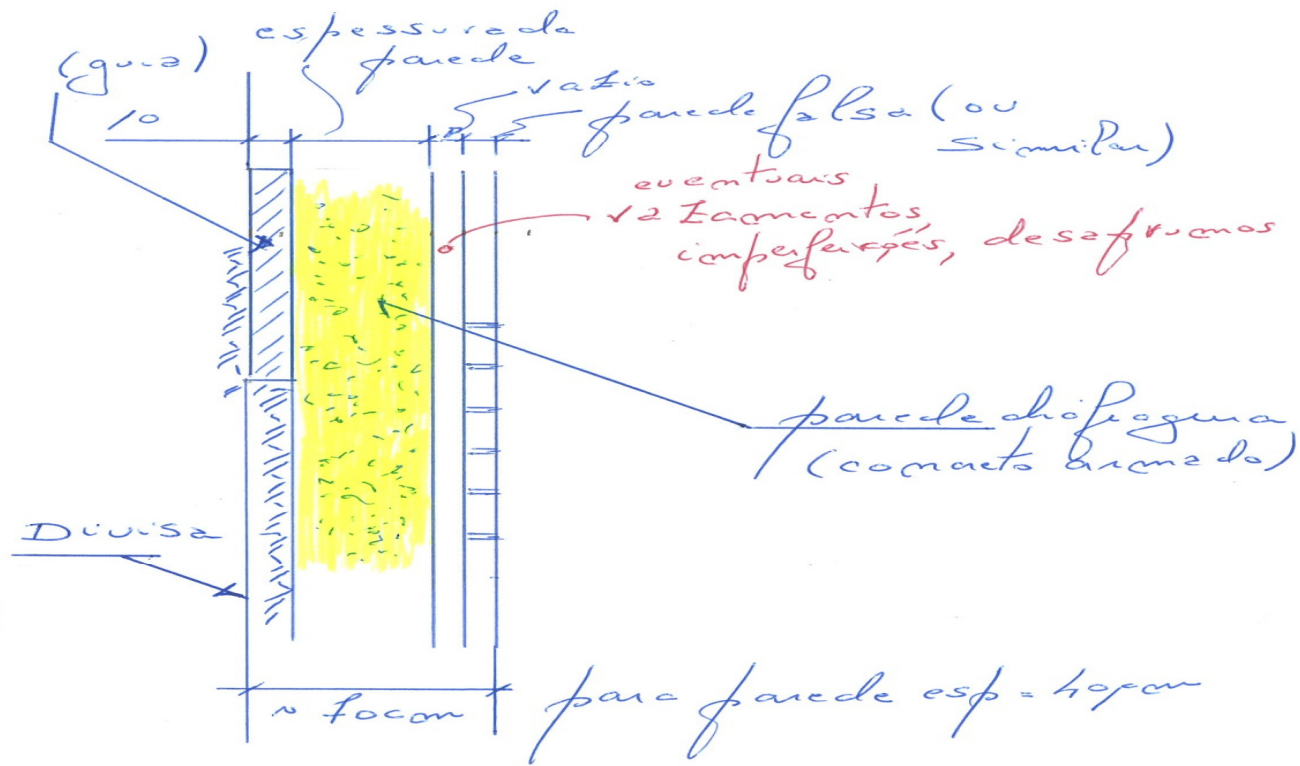 (guia)
10
espessura da
parede
vazio
parede falsa (ou
similar)
eventuais
vazamentos,
imperfeições, desaprumos
parede diafragma
(concreto armado)
Divisa
~ 70cm
para parede esp = 40cm